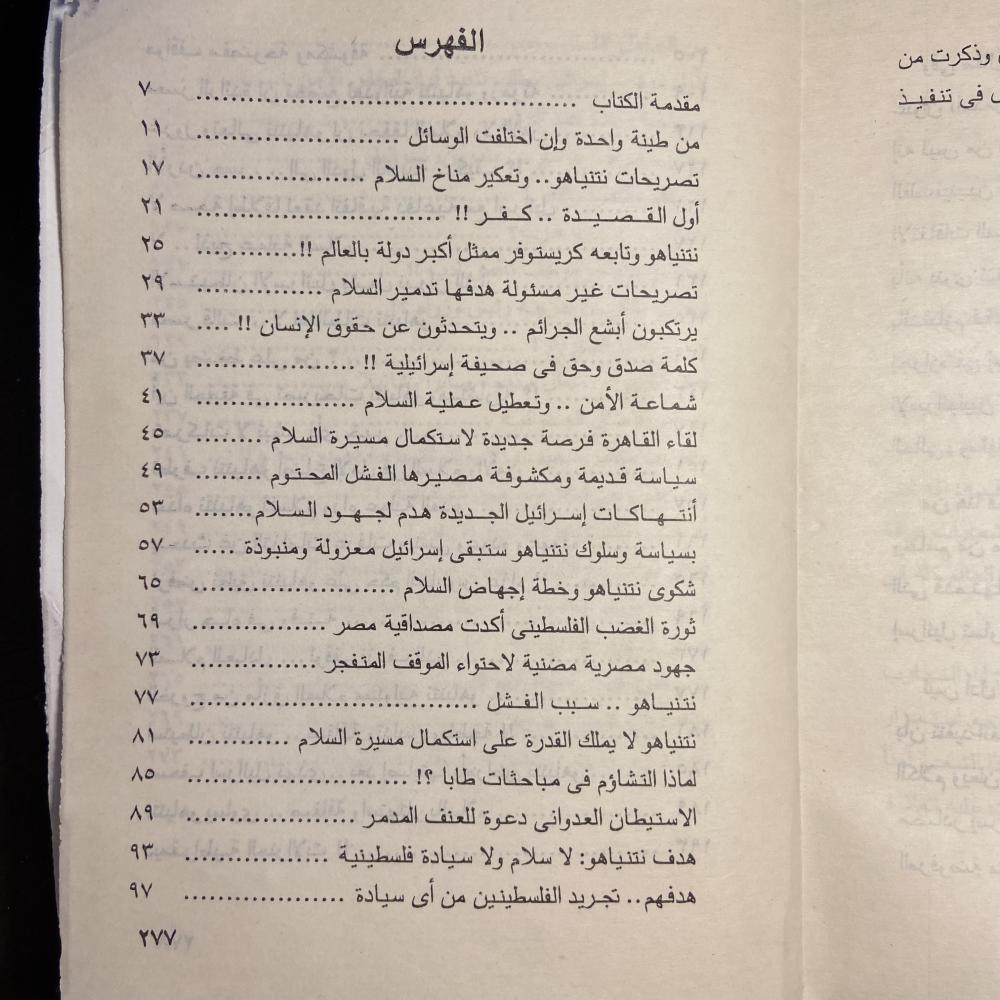 الفهرس
مقدمة الكتاب ........................................ ٧
من طينة واحدة وإن اختلفت الوسائل ........................ ١١
تصريحات نتنياهو.. وتعكير مناخ السلام .................. ١٧
أول القصيدة .. كفر !! .......................... ٢١
نتنياهو وتابعه كريستوفر ممثل أكبر دولة بالعالم !!............ ٢٥
تصريحات غير مسئولة هدفها تدمير السلام ................ ٢٩
يرتكبون أبشع الجرائم .. ويتحدثون عن حقوق الإنسان !! .... ٣٣
كلمة صدق وحق فى صحيفة إسرائيلية !! .................. ٣٧
شماعة الأمن .. وتعطيل عملية السلام .................... ٤١
لقاء القاهرة فرصة جديدة لاستكمال مسيرة السلام ........ ٤٥
سياسة قديمة ومكشوفة مصيرها الفشل المحتوم ........ ٤٩
أنتهاكات إسرائيل الجديدة هدم لجهود السلام........ ٥٣
بسياسة وسلوك نتنياهو ستبقى إسرائيل معزولة ومنبوذة ..... ٥٧
شكوى نتنياهو وخطة إجهاض السلام ........................ ٦٥
ثورة الغضب الفلسطينى أكدت مصداقية مصر .............. ٦٩
جهود مصرية مضنية لاحتواء الموقف المتفجر ................ ٧٣
نتنياهو .. سبب الفشل .............................. ٧٧
نتنياهو لا يملك القدرة على استكمال مسيرة السلام ........... ٨١
لماذا التشاؤم فى مباحثات طابا ؟! ........................ ٨٥
الاستيطان العدوانى دعوة للعنف المدمر .................... ٨٩
هدف نتنياهو: لا سلام ولا سيادة فلسطينية .................. ٩٣
هدفهم.. تجريد الفلسطينين من أى سيادة .................. ٩٧
٢٧٧
وذكرت من
فى تنفيذ